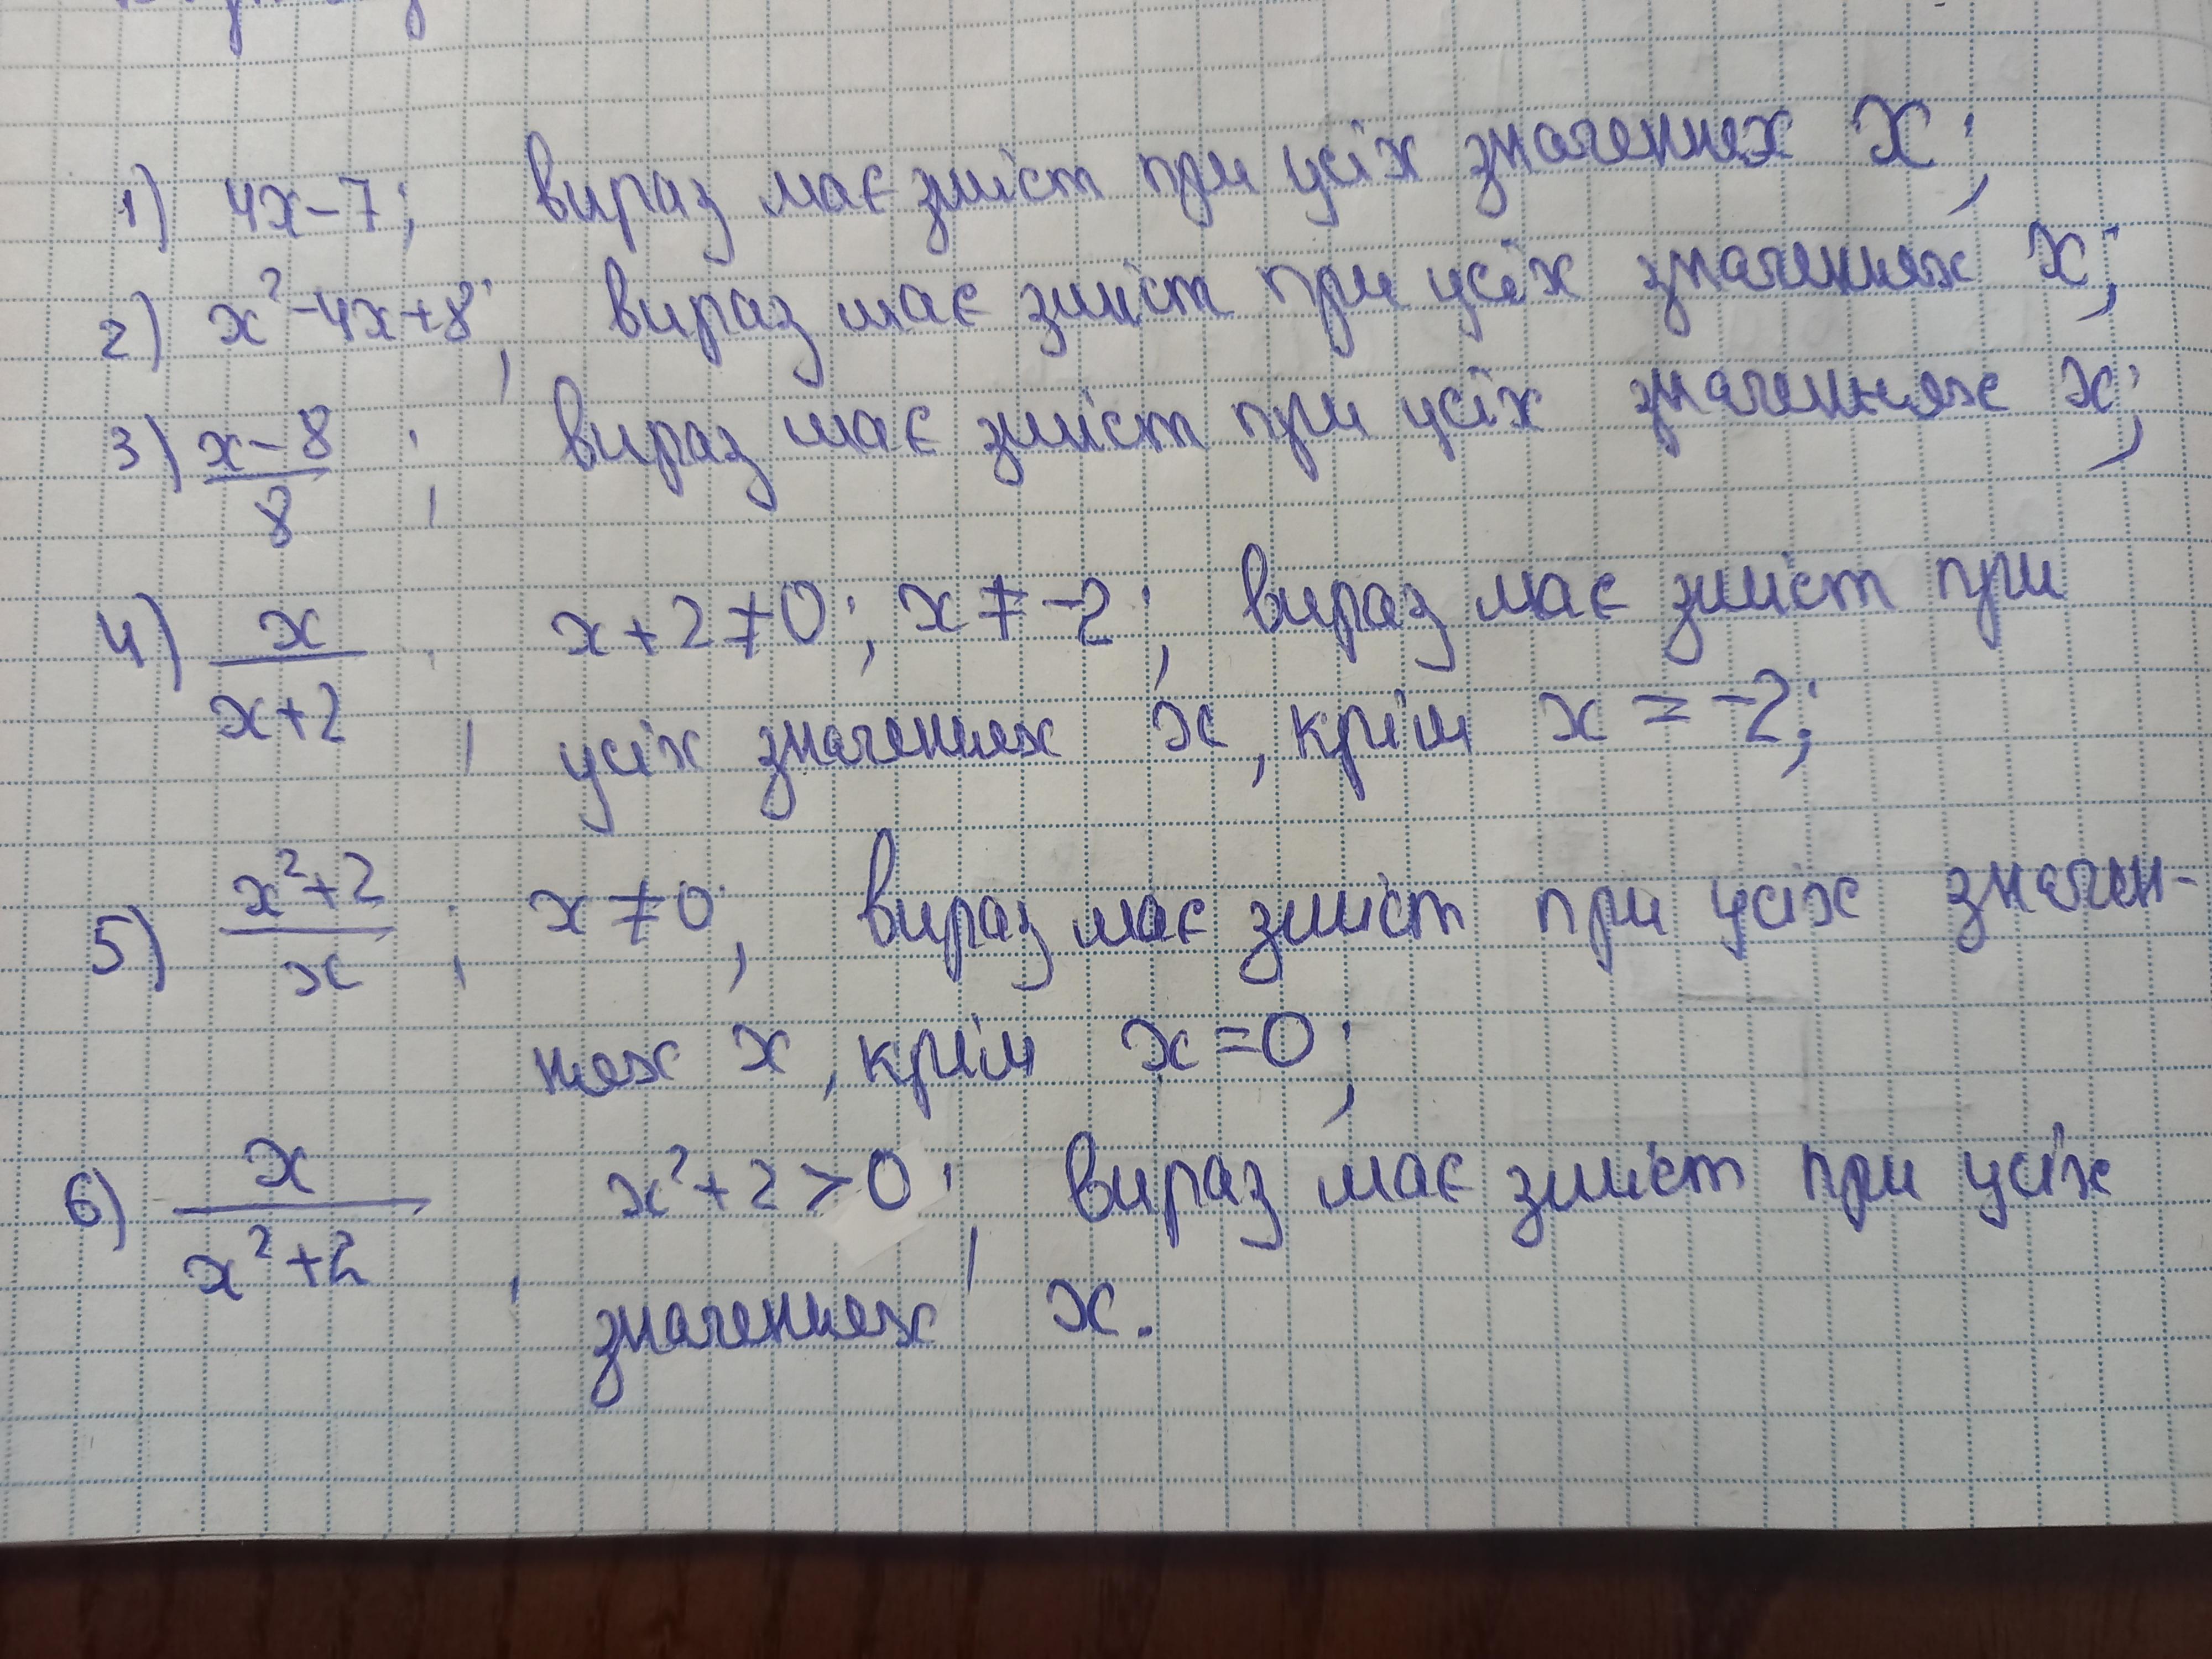 1) 4x-7; вираз має зміст при усіх значеннях x;
2) x²-4x+8; вираз має зміст при усіх значеннях x;
3) x-8/8; вираз має зміст при усіх значеннях x;
4) x/x+2; x+2≠0; x≠-2; вираз має зміст при
усіх значеннях x, крім x=-2;
5) x²+2/x; x≠0; вираз має зміст при усіх значен-
нях x, крім x=0;
6) x/x²+2; x²+2>0; вираз має зміст при усіх
значеннях x.